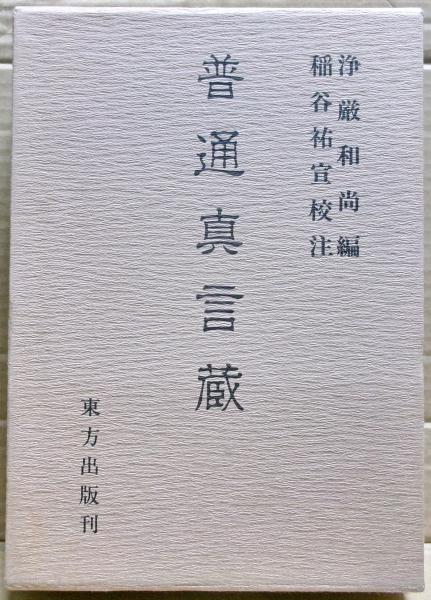 浄厳和尚編
稲谷祐宣校注
普通真言蔵
東方出版刊